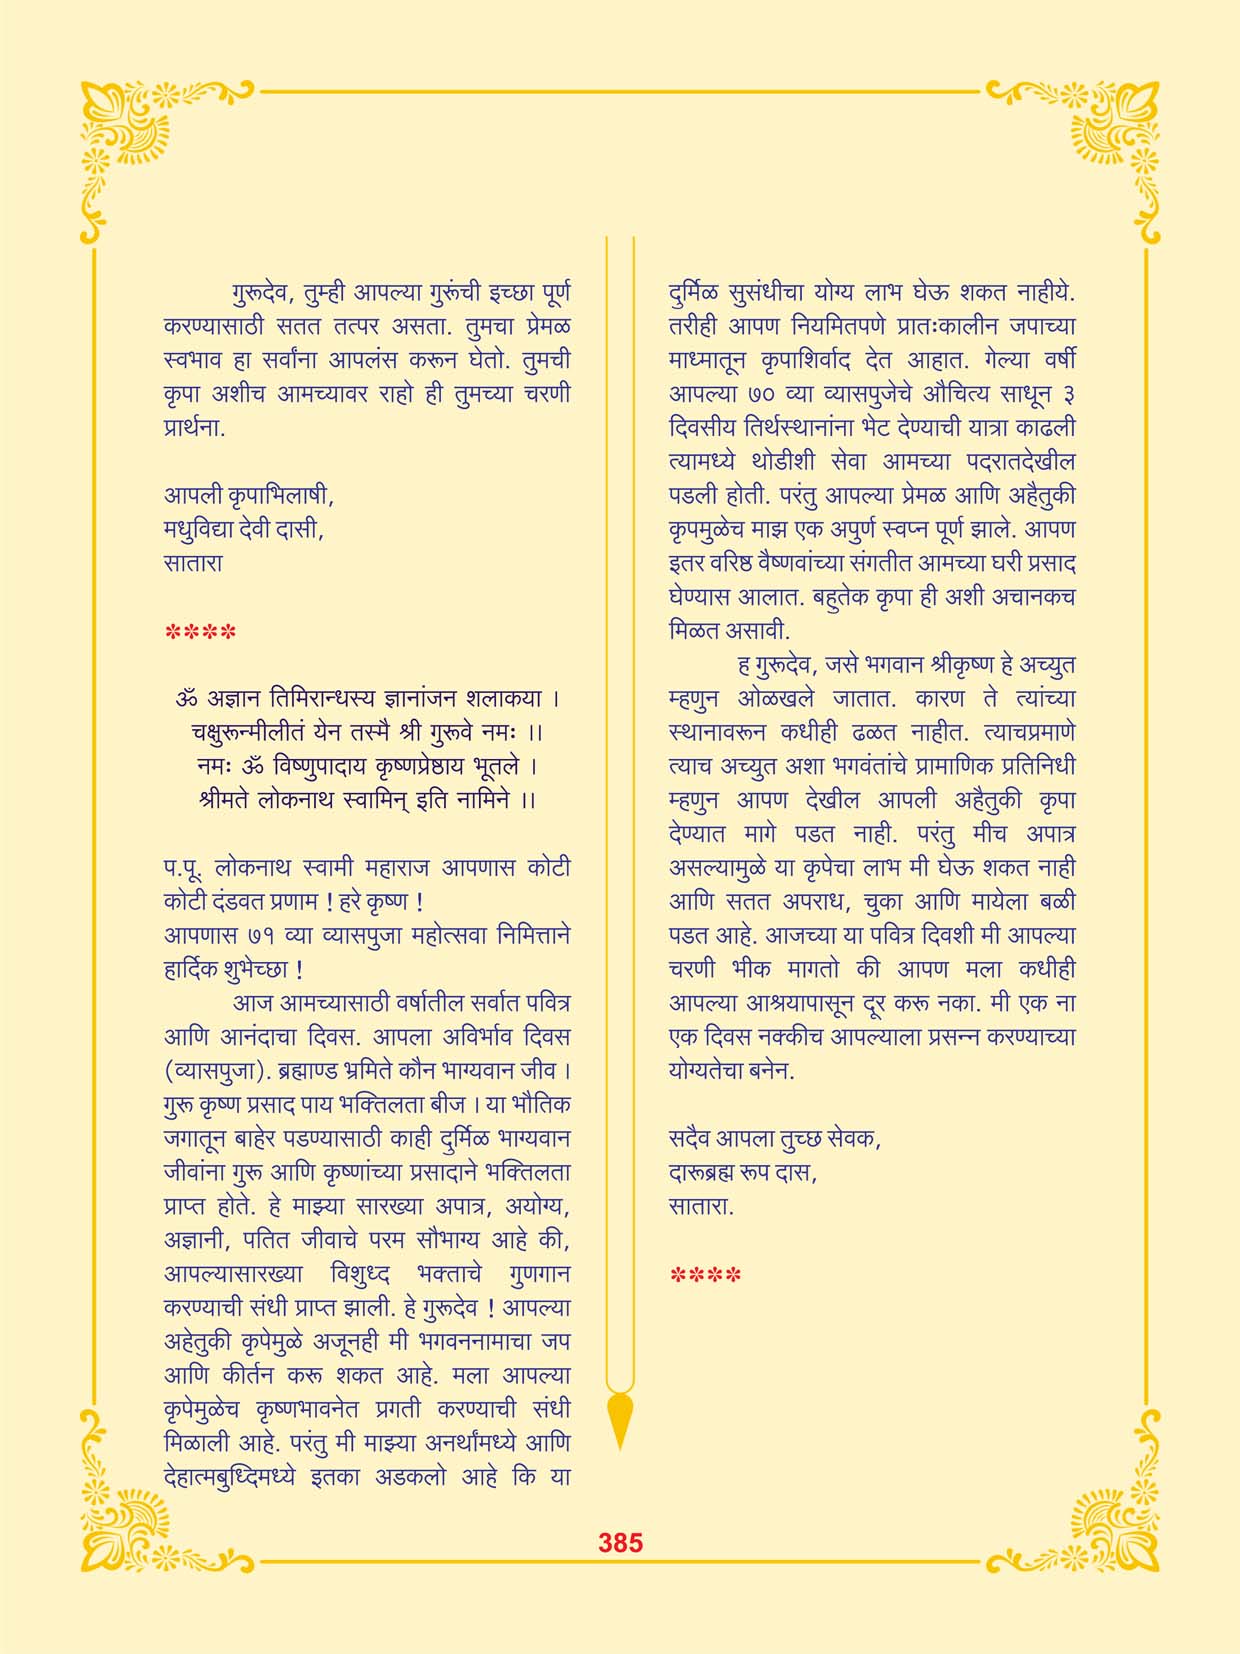 गुरूदेव, तुम्ही आपल्या गुरूंची इच्छा पूर्ण
करण्यासाठी सतत तत्पर असता. तुमचा प्रेमळ
स्वभाव हा सर्वांना आपलंस करून घेतो. तुमची
कृपा अशीच आमच्यावर राहो ही तुमच्या चरणी
प्रार्थना.
आपली कृपाभिलाषी,
मधुविद्या देवी दासी,
सातारा
****
ॐ अज्ञान तिमिरान्धस्य ज्ञानांजन शलाकया ।
चक्षुरून्मीलीतं येन तस्मै श्री गुरूवे नमः ।।
नमः ॐ विष्णुपादाय कृष्णप्रेष्ठाय भूतले ।
श्रीमते लोकनाथ स्वामिन् इति नामिने ।।
प.पू. लोकनाथ स्वामी महाराज आपणास कोटी
कोटी दंडवत प्रणाम ! हरे कृष्ण !
आपणास ७१ व्या व्यासपुजा महोत्सवा निमित्ताने
हार्दिक शुभेच्छा !
आज आमच्यासाठी वर्षातील सर्वात पवित्र
आणि आनंदाचा दिवस. आपला अविर्भाव दिवस
(व्यासपुजा). ब्रह्माण्ड भ्रमिते कौन भाग्यवान जीव ।
गुरू कृष्ण प्रसाद पाय भक्तिलता बीज । या भौतिक
जगातून बाहेर पडण्यासाठी काही दुर्मिळ भाग्यवान
जीवांना गुरू आणि कृष्णांच्या प्रसादाने भक्तिलता
प्राप्त होते. हे माझ्या सारख्या अपात्र, अयोग्य,
अज्ञानी, पतित जीवाचे परम सौभाग्य आहे की,
आपल्यासारख्या विशुध्द भक्ताचे गुणगान
करण्याची संधी प्राप्त झाली. हे गुरूदेव ! आपल्या
अहेतुकी कृपेमुळे अजूनही मी भगवननामाचा जप
आणि कीर्तन करू शकत आहे. मला आपल्या
कृपेमुळेच कृष्णभावनेत प्रगती करण्याची संधी
मिळाली आहे. परंतु मी माझ्या अनर्थांमध्ये आणि
देहात्मबुध्दिमध्ये इतका अडकलो आहे कि या
दुर्मिळ सुसंधीचा योग्य लाभ घेऊ शकत नाहीये.
तरीही आपण नियमितपणे प्रातःकालीन जपाच्या
माध्मातून कृपाशिर्वाद देत आहात. गेल्या वर्षी
आपल्या ७० व्या व्यासपुजेचे औचित्य साधून ३
दिवसीय तिर्थस्थानांना भेट देण्याची यात्रा काढली
त्यामध्ये थोडीशी सेवा आमच्या पदरातदेखील
पडली होती. परंतु आपल्या प्रेमळ आणि अहैतुकी
कृपमुळेच माझ एक अपुर्ण स्वप्न पूर्ण झाले. आपण
इतर वरिष्ठ वैष्णवांच्या संगतीत आमच्या घरी प्रसाद
घेण्यास आलात. बहुतेक कृपा ही अशी अचानकच
मिळत असावी.
ह गुरूदेव, जसे भगवान श्रीकृष्ण हे अच्युत
म्हणुन ओळखले जातात. कारण ते त्यांच्या
स्थानावरून कधीही ढळत नाहीत. त्याचप्रमाणे
त्याच अच्युत अशा भगवंतांचे प्रामाणिक प्रतिनिधी
म्हणुन आपण देखील आपली अहैतुकी कृपा
देण्यात मागे पडत नाही. परंतु मीच अपात्र
असल्यामुळे या कृपेचा लाभ मी घेऊ शकत नाही
आणि सतत अपराध, चुका आणि मायेला बळी
पडत आहे. आजच्या या पवित्र दिवशी मी आपल्या
चरणी भीक मागतो की आपण मला कधीही
आपल्या आश्रयापासून दूर करू नका. मी एक ना
एक दिवस नक्कीच आपल्याला प्रसन्न करण्याच्या
योग्यतेचा बनेन.
सदैव आपला तुच्छ सेवक,
दारूब्रह्म रूप दास,
सातारा.
****
385